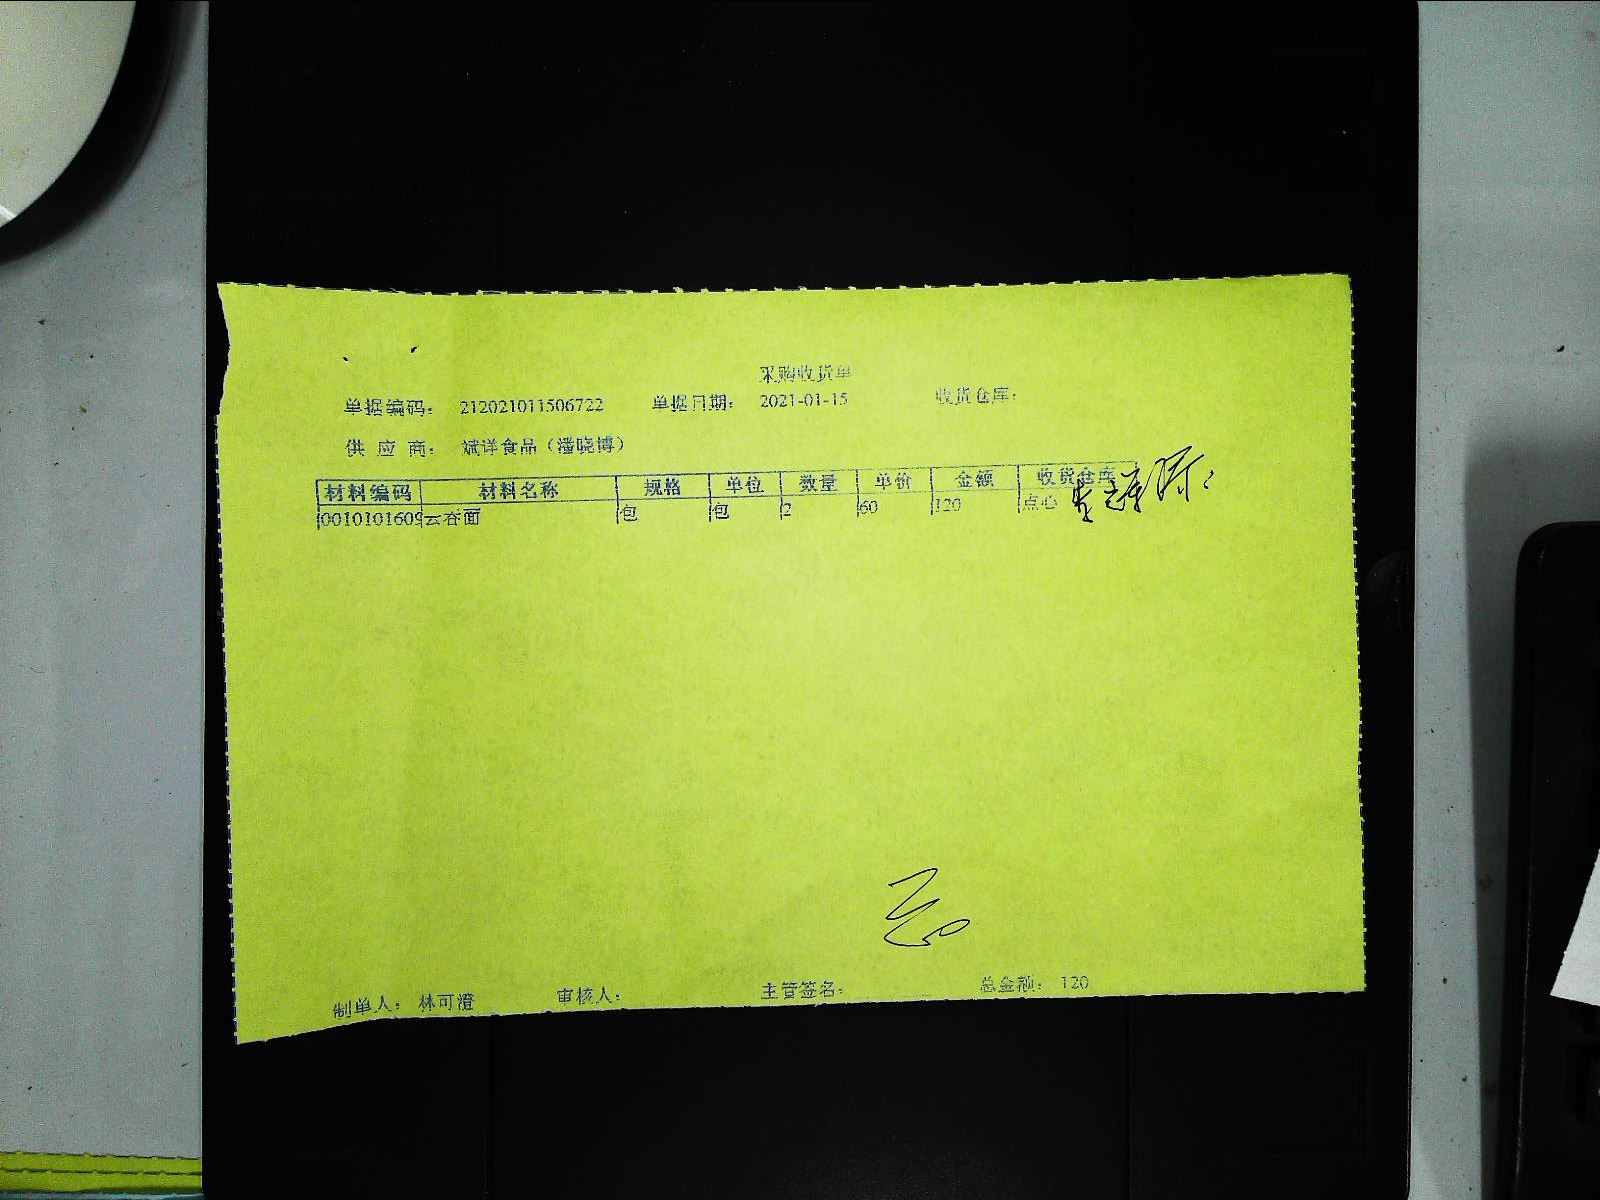 采购收货单
单据编码： 212021011506722 单据日期： 2021-01-15 收货仓库：
供 应 商： 斌洋食品（潘晓博）
材料编码 材料名称 规格 单位 数量 单价 金额 收货仓库
0010101609 云吞面 包 包 2 60 120 点心
制单人： 林可澄 审核人： 主管签名： 总金额： 120